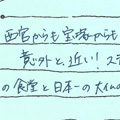 西宮からも宝塚からも
意外と、近い! ス
の食堂と日本一の大イ